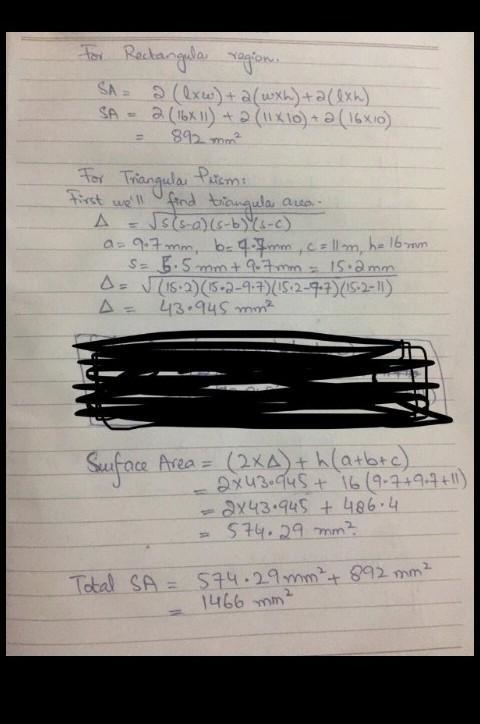 For Rectangular region.
SA = 2(l×w) + 2(w×h) + 2(l×h)
SA = 2(16×11) + 2(11×10) + 2(16×10)
= 892 mm²
For Triangular Prism:
First we'll find triangular area.
Δ = √s(s-a)(s-b)(s-c)
a = 9.7mm, b = 9.7mm, c = 11m, h = 16mm
s = 5.5mm + 9.7mm = 15.2mm
Δ = √(15.2)(15.2-9.7)(15.2-9.7)(15.2-11)
Δ = 43.945 mm²
Surface Area = (2×Δ) + h(a+b+c)
= 2×43.945 + 16(9.7+9.7+11)
= 2×43.945 + 486.4
= 574.29 mm².
Total SA = 574.29mm² + 892 mm²
= 1466 mm²